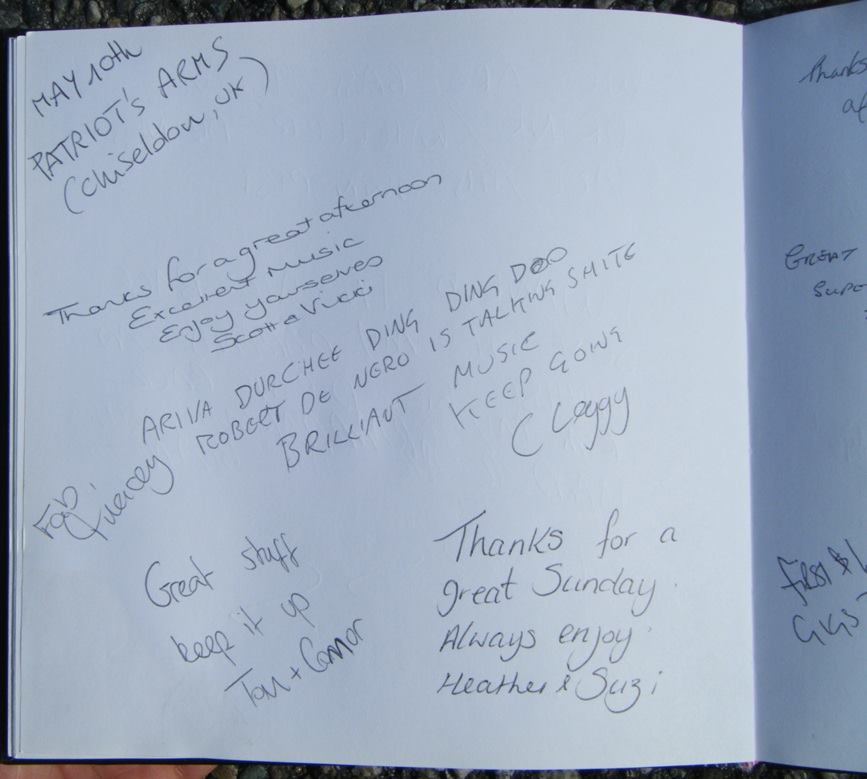 MAY 10th
PATRIOT'S ARMS
(Chiseldon, UK)
Thanks for a great afternoon
Excellent Music
Enjoy yourselves
Scott & Vicki
ARIVA DURCHEE DING DING DOO
ROBERT DE NERO IS TALKING SHITE
BRILLIANT MUSIC
KEEP GOING
Cleggy
Fab.
Great stuff
keep it up
Tom + Connor
Thanks for a
great Sunday.
Always enjoy.
Heather & Suzi
Thanks
GREAT
FIRST
GIGS